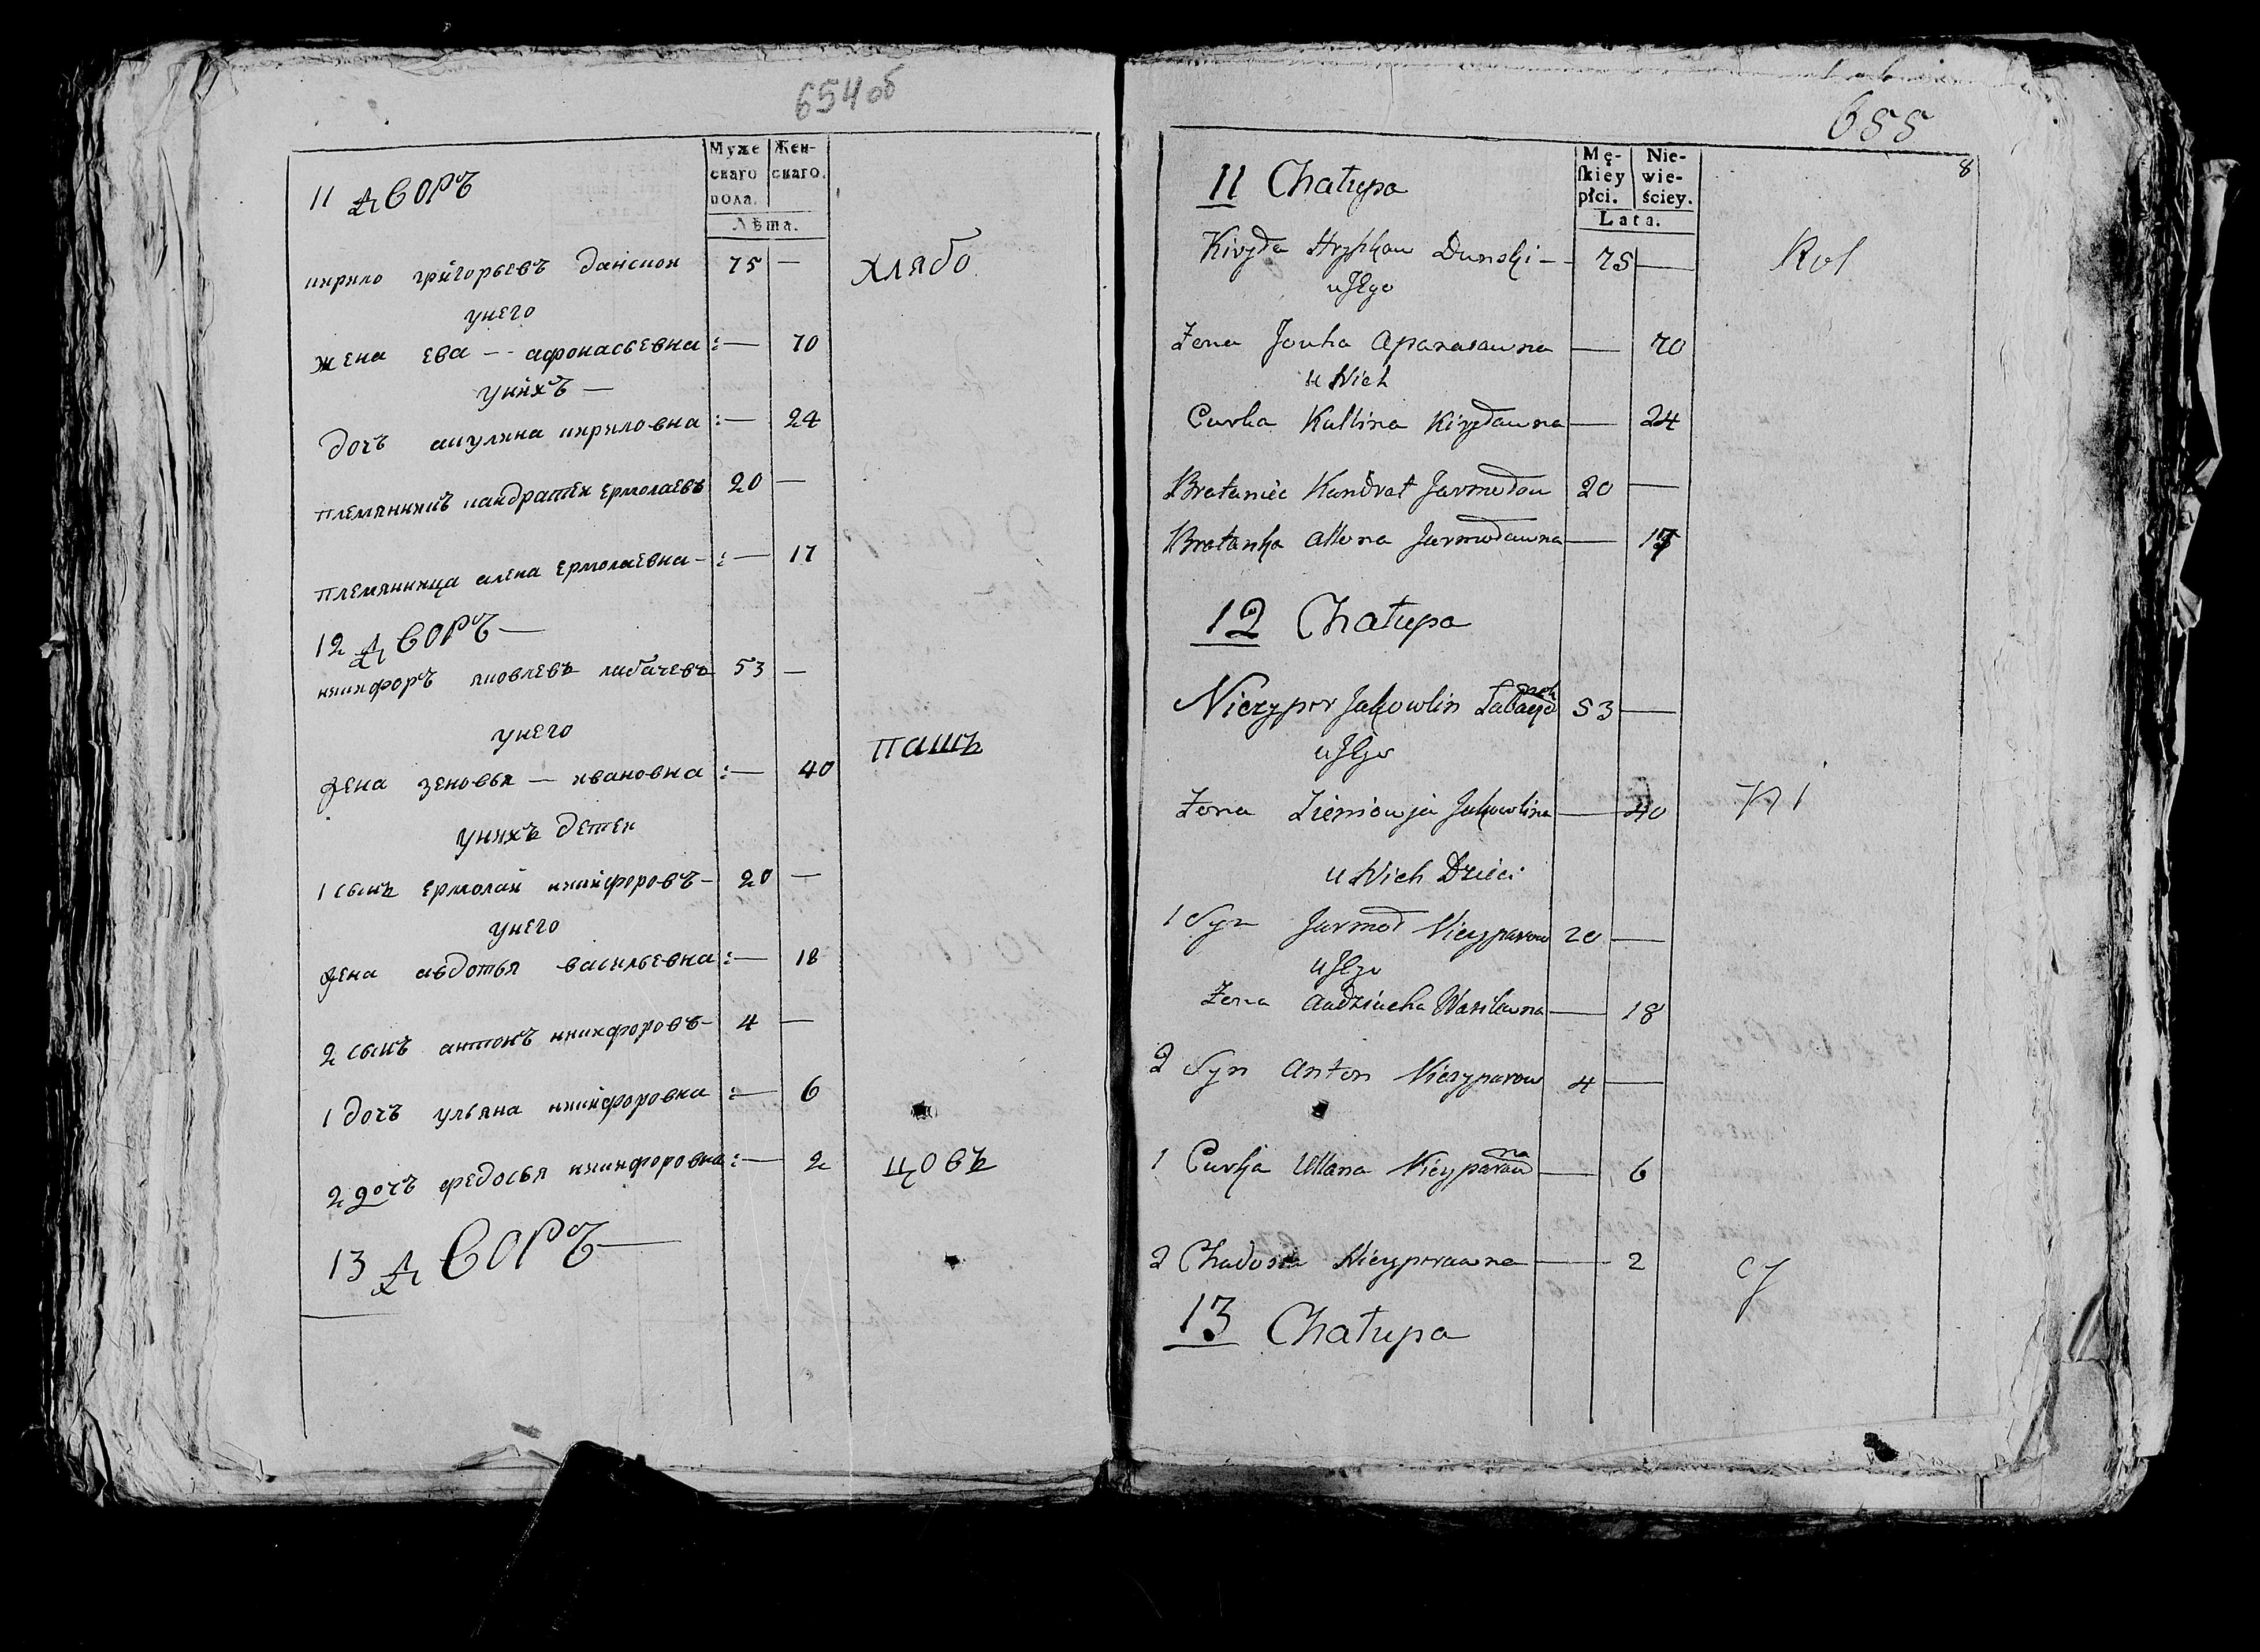 654об
Муже
скаго
пола.
Жен-
скаго.
Лѣта.
11 дворъ
кирило григорьевъ данскои 75 — хлябо
унего
жена ева -- афонасьевна :— 70
унихъ —
дочъ акулина кириловна :— 24
племянникъ кандратеи ермолаевъ 20 —
племянница алена ермолаевна- :— 17
12 дворъ —
никифоръ яковлевъ лабачевъ 53 —
унего
пашъ
жена зеновья — ивановна :— 40
унихъ детеи
1 сынъ ермолаи никифоровъ- 20 —
унего
жена авдотья васильевна :— 18
2 сынъ антонъ никифоровъ- 4 —
1 дочъ ульяна никифоровна :— 6
2 дочъ федосья никифоровна :— 2 цовъ
13 дворъ —
655
8
Mę-
ſkiey
płci.
Nie-
wie-
ściey.
Lata.
11 Chałupa
Kiryła Hryhkow Dunski - - 75 — Rol
u Jego
Żona Jouka Apanasauna — 70
u Nich
Curka Kullina Kiryłauna — 24
Brataniec Kandrat Jarmołou 20 —
Bratanka Allona Jarmołauna — 17
12 Chałupa
Niczypor Jakowlin 53 —
u Jego
Żona Zieniowja Jakowlina — 40 ni
u Nich Dzieci
1 Syn Jarmoł Niczyparow 20 —
u Jego
Żona Audziucha Wasilewna — 18
2 Syn Anton Niczyparow 4 —
1 Curka Ullana Niczyparowna — 6
2 Chadosia Niczyporauna — 2 cy
13 Chałupa